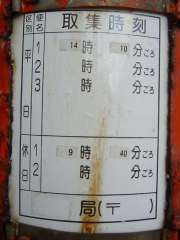 区別 便名 取集時刻
平日 1 14時 10分ごろ
2 時 分ごろ
3 時 分ごろ
休日 1 9時 40分ごろ
2 時 分ごろ
局(〒 )